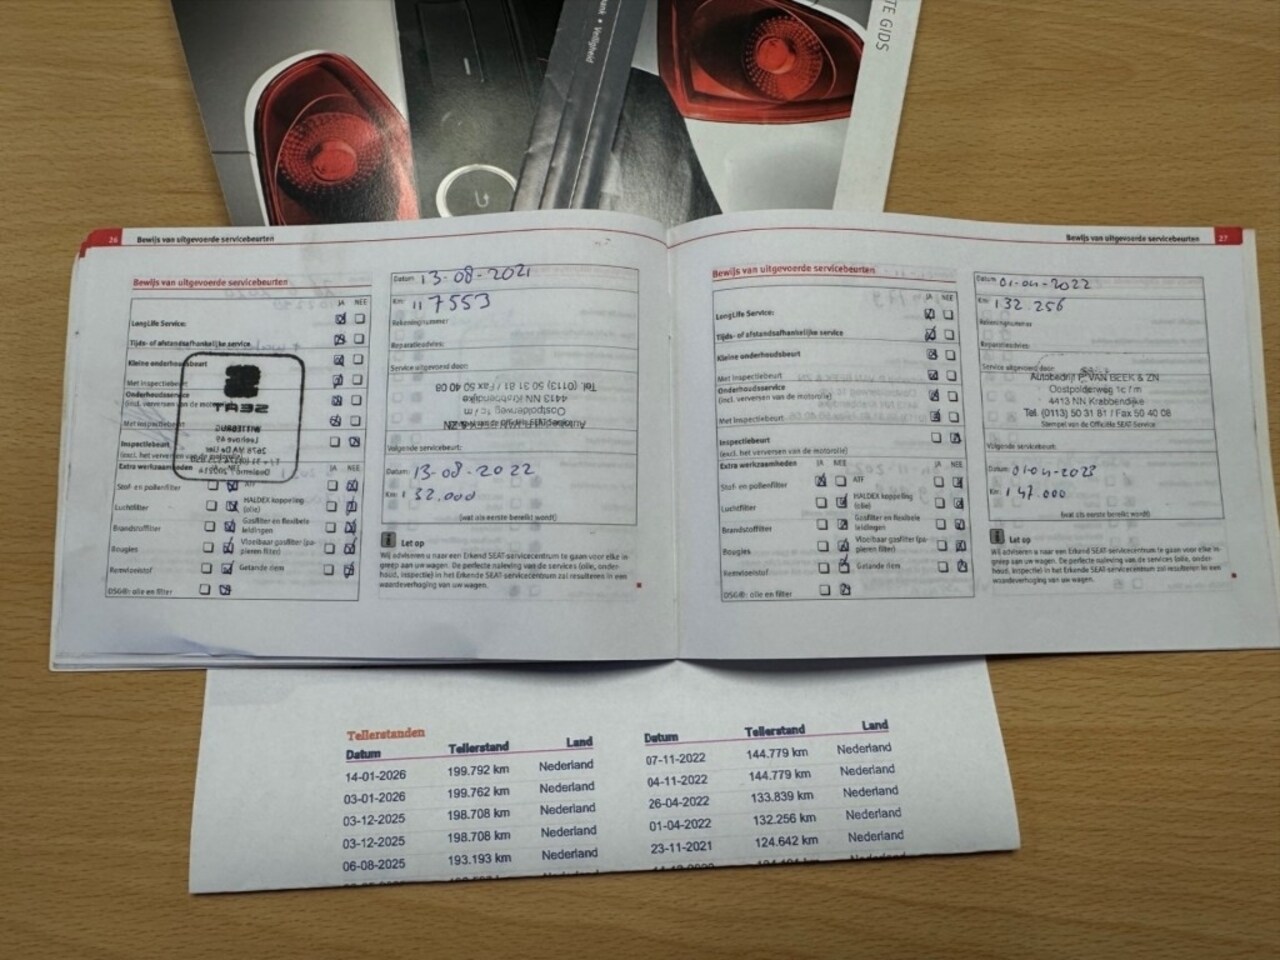 TE GIDS
Veiligheid
26 Bewijs van uitgevoerde servicebeurten
Bewijs van uitgevoerde servicebeurten
JA NEE
LongLife Service:
Tijds- of afstandsafhankelijke service
Kleine onderhoudsbeurt
Met inspectiebeurt
Onderhoudsservice
(incl. verversen van de motorolie)
Met inspectiebeurt
Inspectiebeurt
(excl. het verversen van de motorolie)
SEAT
Extra werkzaamheden JA NEE JA NEE
Stof- en pollenfilter ATF
Luchtfilter HALDEX koppeling (olie)
Brandstoffilter Gasfilter en flexibele leidingen
Bougies Vloeibaar gasfilter (papieren filter)
Remvloeistof Getande riem
DSG®: olie en filter
Datum 13-08-2021
Km: 117553
Rekeningnummer
Reparatieadvies:
Service uitgevoerd door:
Tel. (0113) 50 31 81 / Fax 50 40 08
4413 NN Krabbendijke
Oostpolderweg 1c / m
Volgende servicebeurt:
Datum: 13-08-2022
Km: 132.000
(wat als eerste bereikt wordt)
Let op
Wij adviseren u naar een Erkend SEAT-servicecentrum te gaan voor elke in-
greep aan uw wagen. De perfecte naleving van de services (olie, onder-
houd, inspectie) in het Erkende SEAT-servicecentrum zal resulteren in een
waardeverhoging van uw wagen.
Bewijs van uitgevoerde servicebeurten 27
Bewijs van uitgevoerde servicebeurten
JA NEE
LongLife Service:
Tijds- of afstandsafhankelijke service
Kleine onderhoudsbeurt
Met inspectiebeurt
Onderhoudsservice
(incl. verversen van de motorolie)
Met inspectiebeurt
Inspectiebeurt
(excl. het verversen van de motorolie)
Extra werkzaamheden JA NEE JA NEE
Stof- en pollenfilter ATF
Luchtfilter HALDEX koppeling (olie)
Brandstoffilter Gasfilter en flexibele leidingen
Bougies Vloeibaar gasfilter (papieren filter)
Remvloeistof Getande riem
DSG®: olie en filter
Datum 01-04-2022
Km: 132.256
Rekeningnummer
Reparatieadvies:
Service uitgevoerd door:
Autobedrijf P. VAN BEEK & ZN
Oostpolderweg 1c / m
4413 NN Krabbendijke
Tel. (0113) 50 31 81 / Fax 50 40 08
Stempel van de Officiële SEAT-Service
Volgende servicebeurt:
Datum: 01-04-2023
Km: 147.000
(wat als eerste bereikt wordt)
Let op
Wij adviseren u naar een Erkend SEAT-servicecentrum te gaan voor elke in-
greep aan uw wagen. De perfecte naleving van de services (olie, onder-
houd, inspectie) in het Erkende SEAT-servicecentrum zal resulteren in een
waardeverhoging van uw wagen.
Tellerstanden
Datum Tellerstand Land
14-01-2026 199.792 km Nederland
03-01-2026 199.762 km Nederland
03-12-2025 198.708 km Nederland
03-12-2025 198.708 km Nederland
06-08-2025 193.193 km Nederland
Datum Tellerstand Land
07-11-2022 144.779 km Nederland
04-11-2022 144.779 km Nederland
26-04-2022 133.839 km Nederland
01-04-2022 132.256 km Nederland
23-11-2021 124.642 km Nederland